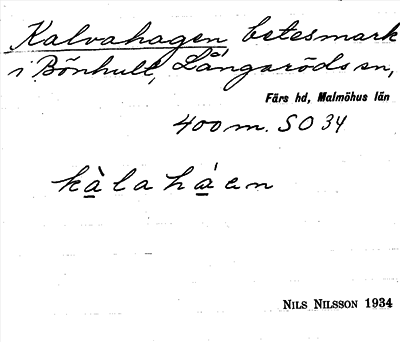 Kalvahagen betesmark
i Bönhult, Långaröds sn,
Färs hd, Malmöhus län
400 m. SO 34
kàlaháen
NILS NILSSON 1934